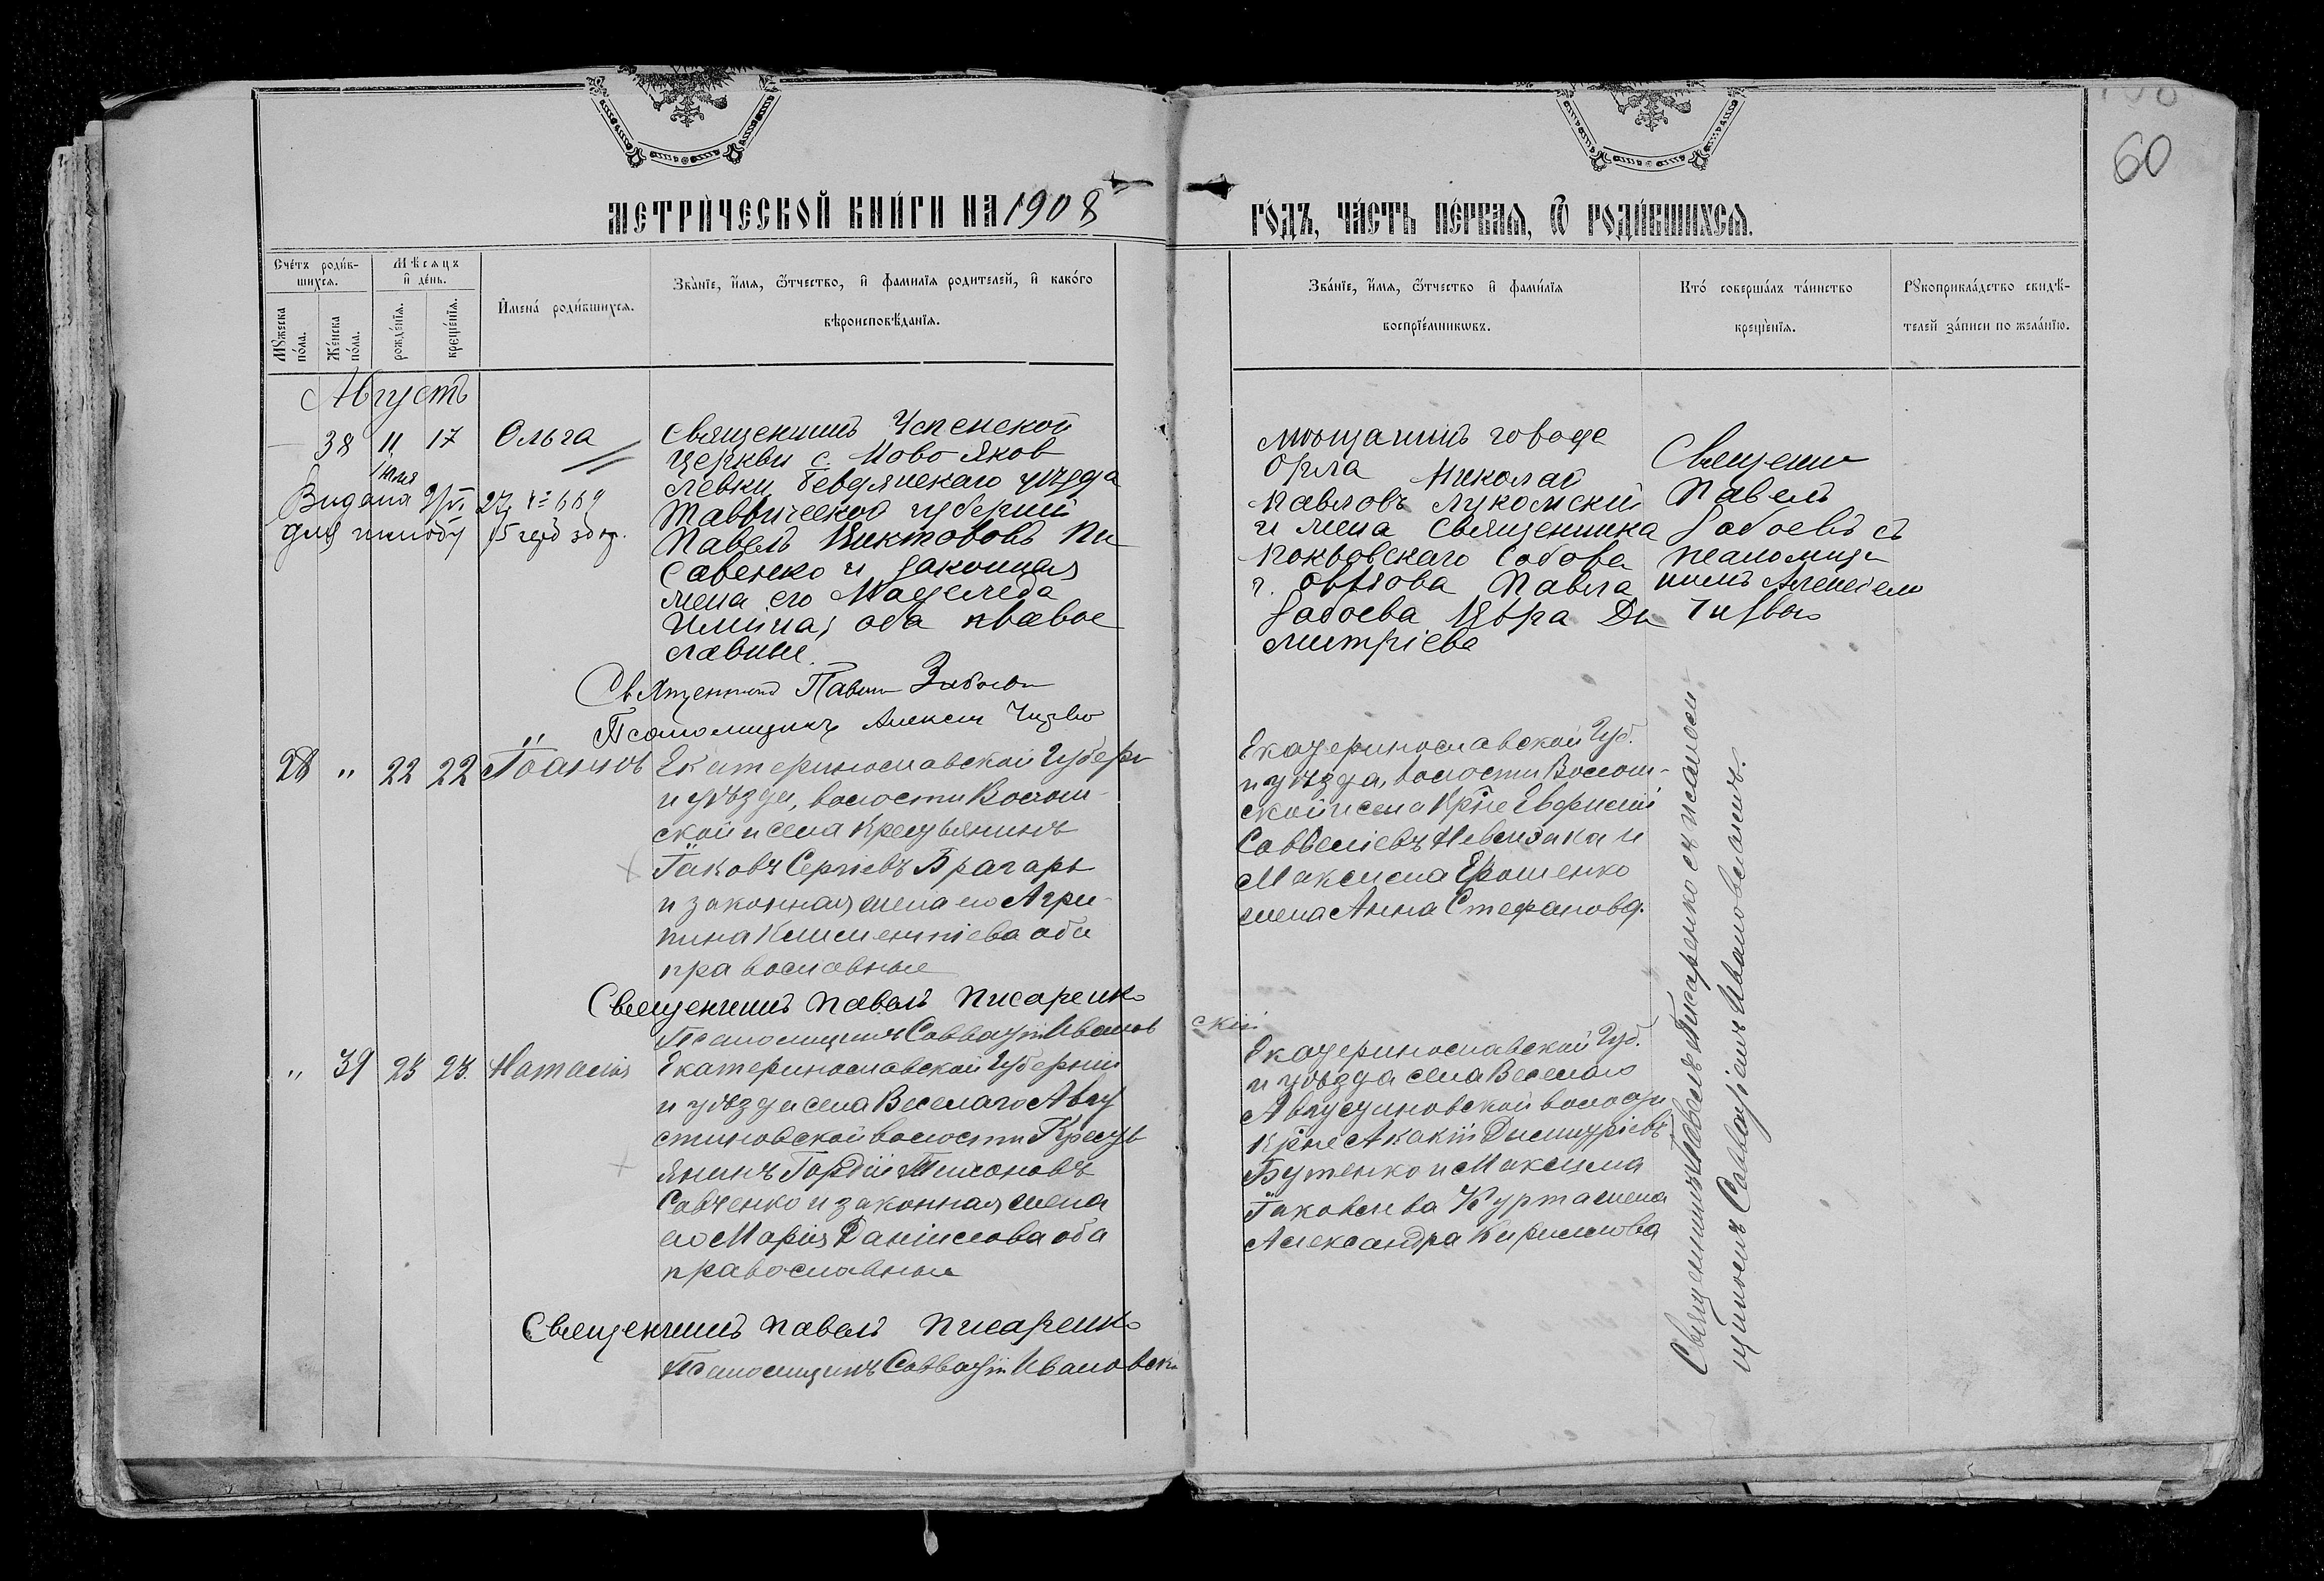 60
МЕТРИЧЕСКОЙ КНИГИ НА 1908
ГОДЪ, ЧАСТЬ ПЕРВАЯ, Ѿ РОДИВШИХСЯ.
Счетъ родившихся.
Мꙋжеска пола.
Женска пола.
Мѣсяцъ и день.
рожденїя.
крещенїя.
Имена родившихся.
Званїе, имя, ѿчество, и фамилїя родителей, и какого
вѣроисповѣданїя.
Званїе, имя, ѿчество и фамилїя
воспрїемникѡвъ.
Кто совершалъ таинство
крещенїя.
Рꙋкоприкладство свидѣ-
телей записи по желанїю.
Августъ
— 38 11 Июля 17 Ольга
Священникъ Успенской
церкви с. Ново Яков
левки Бердянскаго уѣзда
Таврической губернии
Павелъ Викторовъ Пи
саренко и законная
жена его
оба право
славные.
Мѣщанинъ города
Орла Николай
Павловъ Лукомский
и жена священника
Покровскаго Собора
г. Орѣхова Павла
Забоева Вѣра Ди
митріева
Священни
Павелъ
Забоевъ съ
псаломщи
комъ Алексѣем
Видана
27 № 669
Священникъ Павелъ Забоевъ
Псаломщикъ Алексѣй
28 " 22 22 Іоаннъ
Екатеринославской Губерн
и уѣзда, волости Волош-
ской и села Крестьянинъ
Іаковъ Сергіевъ Брагарь
и законная жена его Агри-
пина Климентіева оба
православные
Екатеринославской Губ.
и уѣзда, волости Волош-
ской и села Кр҃не Евфимій
Савеліевъ и
Максима Ерошенко
жена Анна Стефанова.
Священникъ Павелъ Писаренко
Псаломщикъ Савватій Иванов
скій
" 39 23 23. Наталія
Екатеринославской Губерніи
и уѣзда села Веселаго Авгу
стиновской волости Кресть
янинъ Гордій Тимоновъ
Савченко и законная жена
его Марія Даніилова оба
православные
Екатеринославской Губ.
и уѣзда села Веселаго
Августиновской волости
кр҃не Акакій Димитріевъ
Бутенко и Максима
Іаковлева Курта жена
Александра Кириллова
Священникъ Павелъ Писаренко съ псалом-
щикомъ Савватіемъ Ивановскимъ.
Священникъ Павелъ Писаренко
Псаломщикъ Савватій Ивановскі